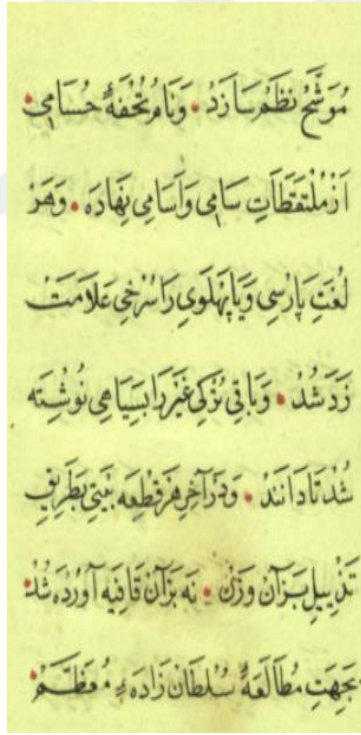 مُوَشَّحْ نَظْمْ سَازَدْ • وَنَامْ تُحْفَهٔ حُسَامِي •
اَزْمُلْتَقَطَاتِ سَامِي وَاَسَامِي نِهَادَه • وَهَرْ
لُغَتِ پَارْسِي وَيَا پَهْلَوِي رَاسُرْخِي عَلَامَتْ
زَدَ شُدْ • وَبَاقِي غَيْرَرَا بَسِيَاهِي نُوِشْتَه
شُدْ تَادَانَنْدْ • وَدَرْآخِرِ هَرْقِطْعَه بَيْتِي بَطَرِيقِ
تَذْيِيلِ بَرَآنْ وَزْنْ • نَه بَرْآنْ قَافِيَه آوُرْدَه شُدْ •
بَجِهَتِ مُطَالَعَهٔ سُلْطَانْ زَادَهٔ مُعَظَّمْ •